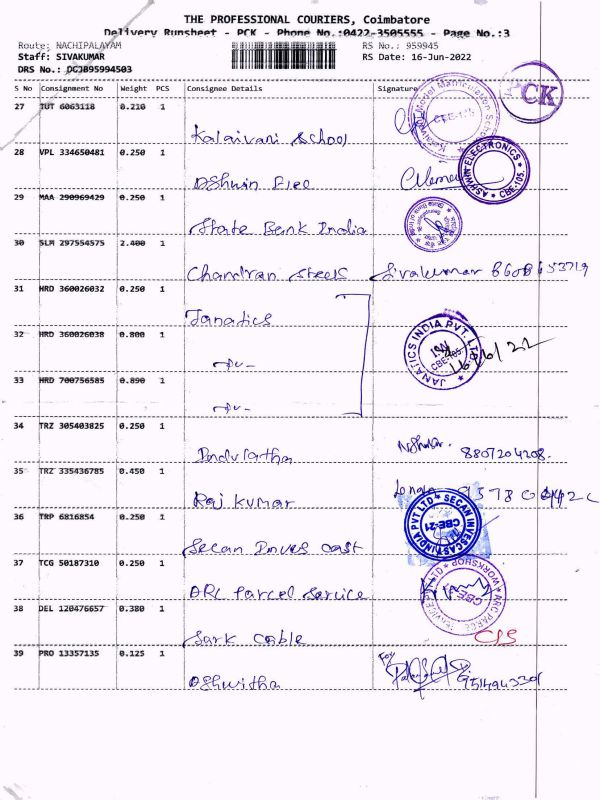 THE PROFESSIONAL COURIERS, Coimbatore
Delivery Runsheet - PCK - Phone No.:0422-3505555 - Page No.:3
Route: NACHIPALAYAM RS No.: 959945
Staff: SIVAKUMAR RS Date: 16-Jun-2022
DRS No.: DCJB95994503
S No Consignment No Weight PCS Consignee Details Signature
27 TUT 6063118 0.210 1
Kalaivani School
PCK
28 VPL 334650481 0.250 1
Ashwin Elec
ASHWIN ELECTRONICS CBE-105.
29 MAA 290969429 0.250 1
State Bank India
30 SLM 297554575 2.400 1
Chandran Steels Sivakumar 8608653719
31 HRD 360026032 0.250 1
Janatics
32 HRD 360026038 0.800 1
-do-
JANATICS INDIA PVT. LTD. CBE-105 16/6/22
33 HRD 700756585 0.890 1
-do-
34 TRZ 305403825 0.250 1
Indulatha 8807204208.
35 TRZ 335436785 0.450 1
Raj kumar
36 TRP 6816854 0.250 1
Secan Inves cast
SECAN INVESCAST INDIA PVT LTD CBE-21
37 TCG 50187310 0.250 1
ARC Parcel Service
WORKSHOP
38 DEL 120476657 0.380 1
Sark Cable
39 PRO 13357135 0.125 1
Ashwitha